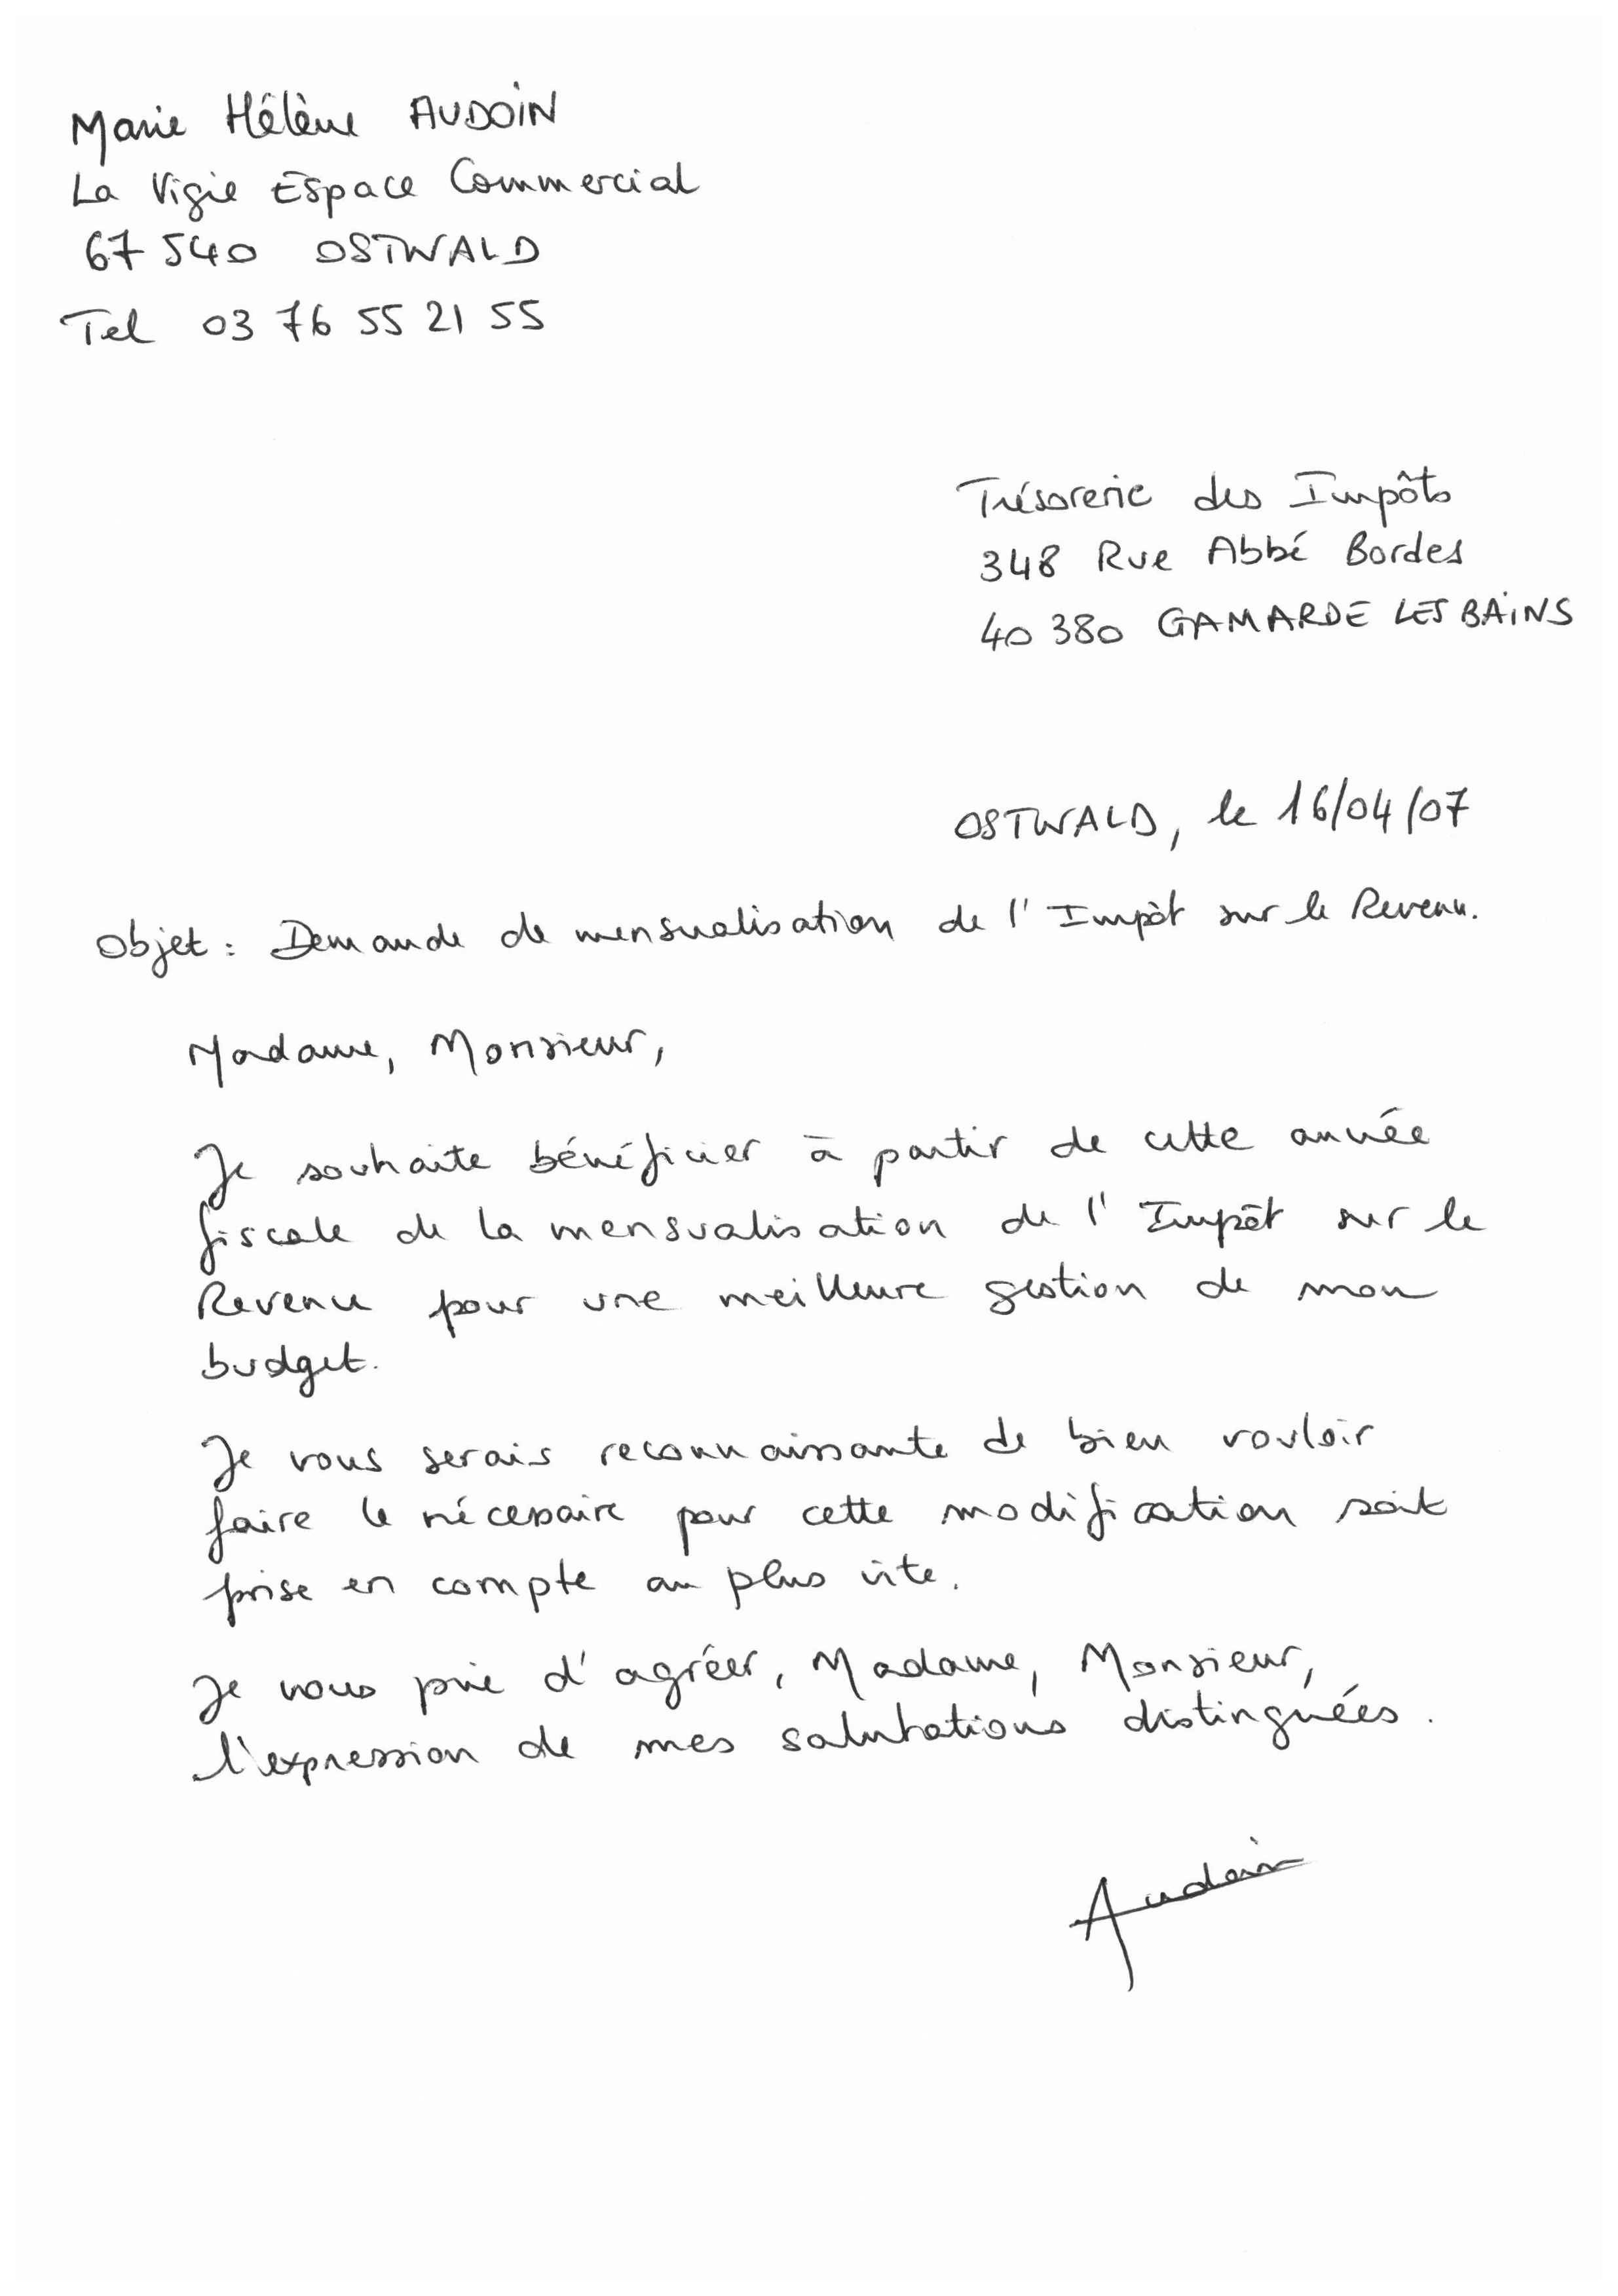 Marie Hélène AUDOIN
La Vigie Espace Commercial
67 540 OSTWALD
Tel 03 76 55 21 55
Trésorerie des Impôts
348 Rue Abbé Bordes
40 380 GAMARDE LES BAINS
OSTWALD, le 16/04/07
Objet : Demande de mensualisation de l'Impôt sur le Revenu.
Madame, Monsieur,
Je souhaite bénéficier à partir de cette année
fiscale de la mensualisation de l'Impôt sur le
Revenu pour une meilleure gestion de mon
budget.
Je vous serais reconnaissante de bien vouloir
faire le nécessaire pour cette modification soit
prise en compte au plus vite.
Je vous prie d'agréer, Madame, Monsieur,
l'expression de mes salutations distinguées.
Audoin